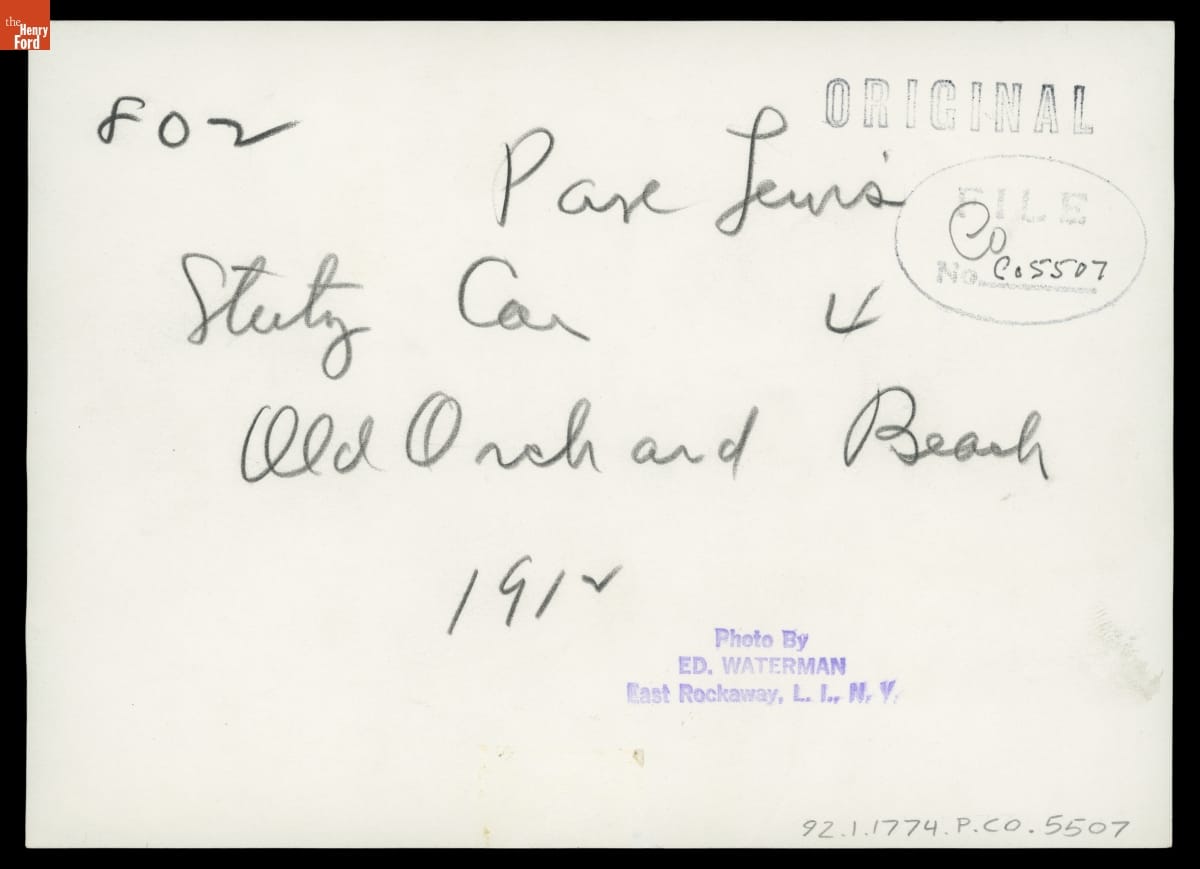 the
Henry
Ford
802
ORIGINAL
Lewis'
FILE
Co
No. Co5507
Stutz Car
Old Orchard Beach
1912
Photo By
ED. WATERMAN
East Rockaway, L. I., N. Y.
92.1.1774.P.CO.5507